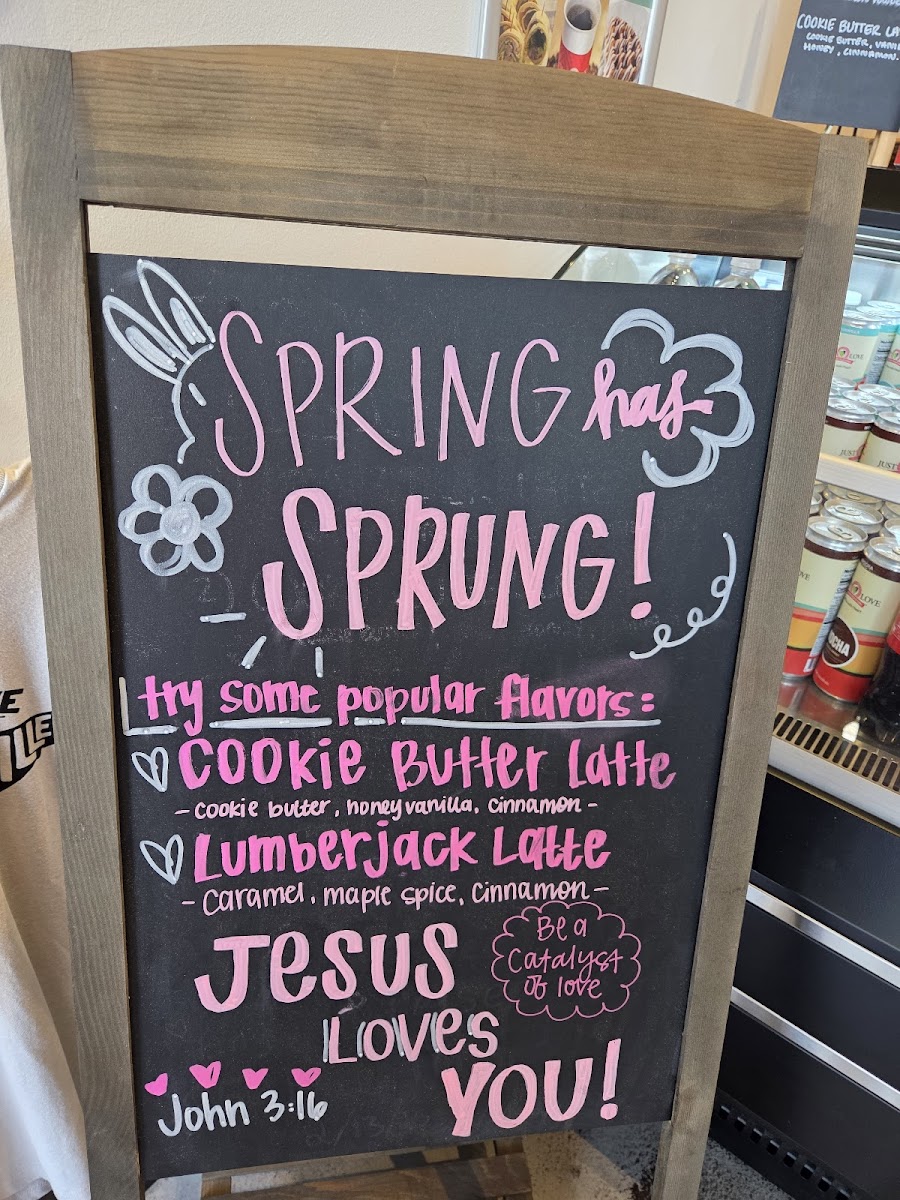 COOKIE BUTTER LA
COOKIE BUTTER, VANI
HONEY, CINNAMON
SPRING has
SPRUNG!
try some popular flavors:
COOKie Butter Latte
- cookie butter, honey vanilla, cinnamon -
Lumberjack Latte
- Caramel, maple spice, cinnamon -
Jesus
Loves
YOU!
Be a
Catalyst
of love
John 3:16
LOVE
JUST
JUST
LOVE
LOVE